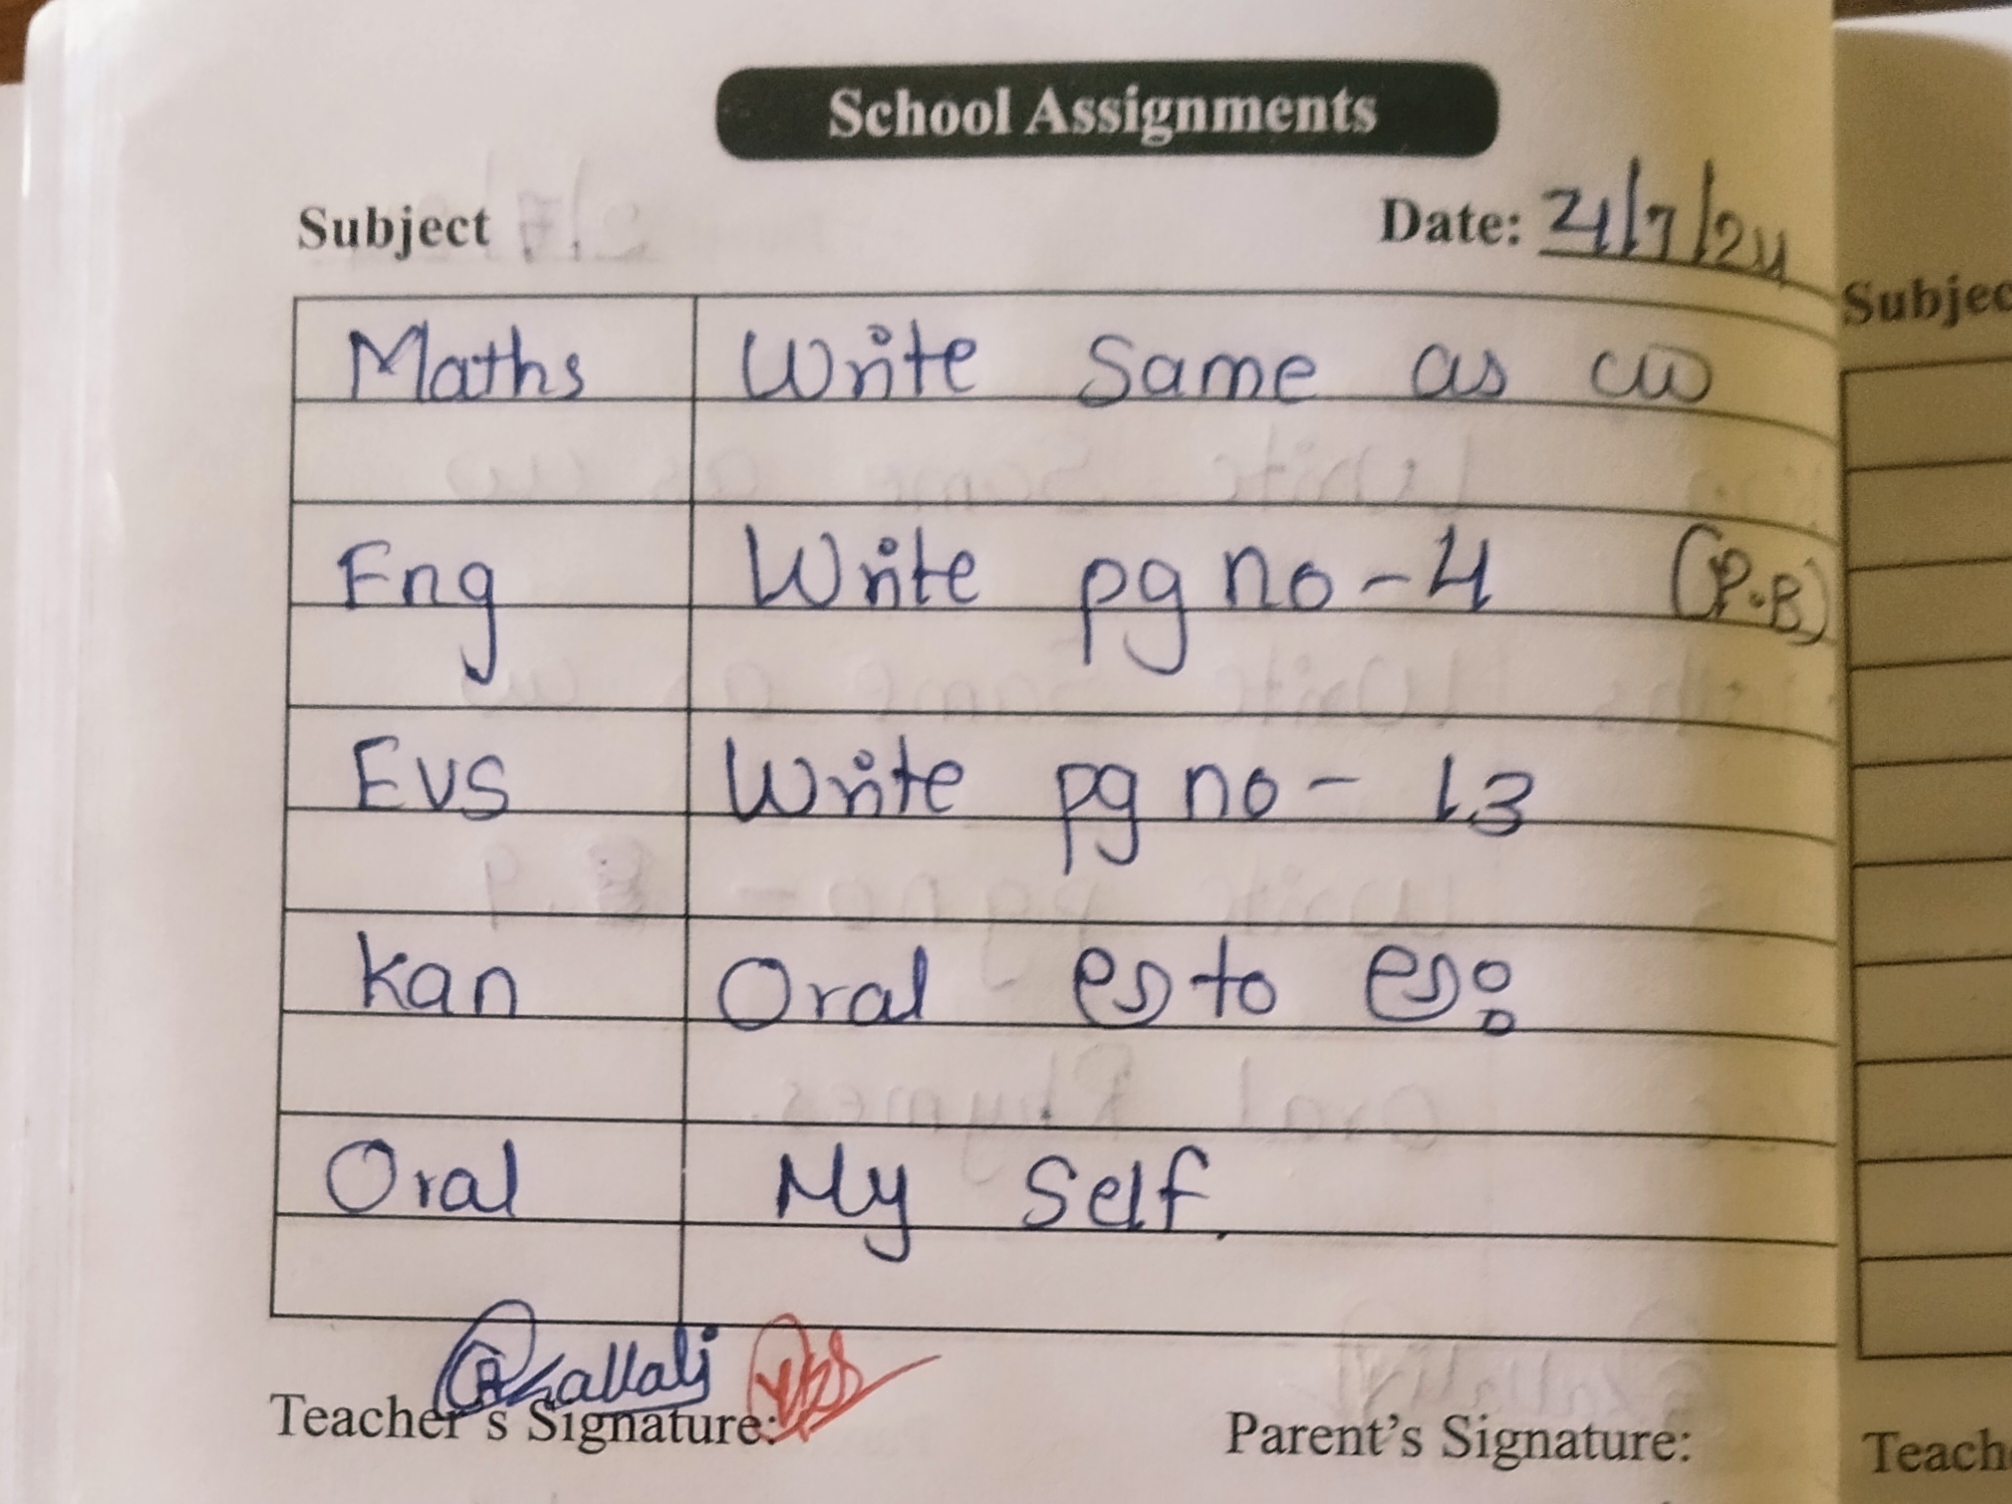 School Assignments
Subject Date: 4/7/24
Maths Write Same as cw
Eng Write pg no - 4 (P.B)
Evs Write pg no - 13
Kan Oral ಅ to ಅಃ
Oral My Self.
Teacher's Signature:
Parent's Signature:
Subjec
Teach